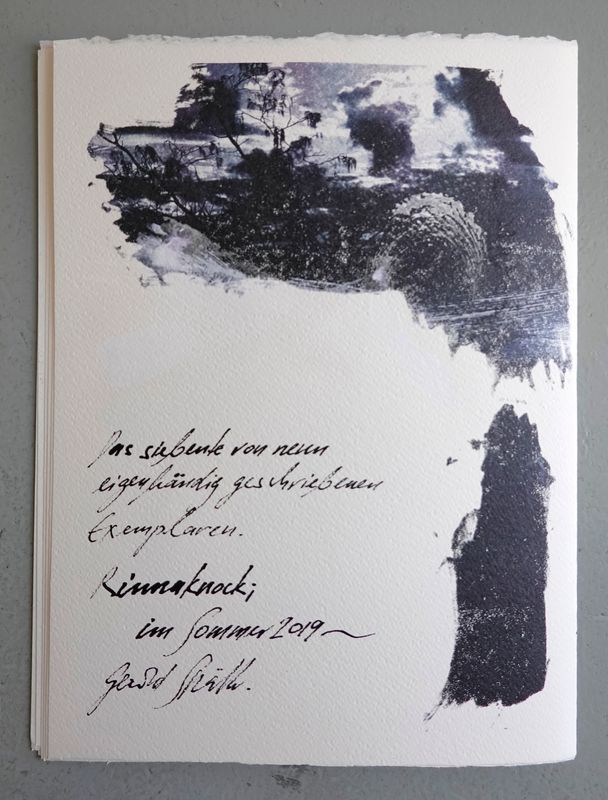 Das siebente von neun
eigenhändig geschriebenen
Exemplaren.
Rinnaknock;
im Sommer 2019
Gerold Späth.